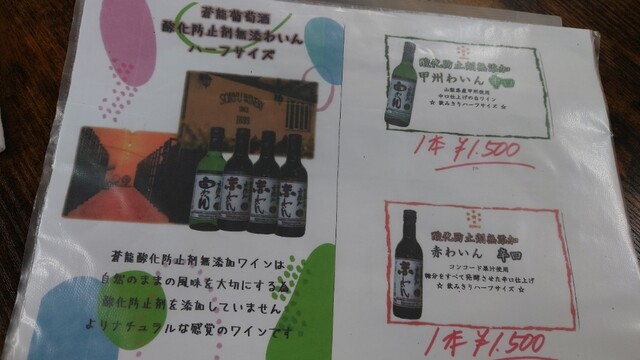 蒼龍葡萄酒
酸化防止剤無添加わいん
ハーフサイズ
蒼龍酸化防止剤無添加ワインは
自然のままの風味を大切にする為
酸化防止剤を添加していません
よりナチュラルな感覚のワインです
酸化防止剤無添加
甲州わいん 辛口
山梨県産甲州使用
辛口仕上げの白ワイン
☆ 飲みきりハーフサイズ ☆
1本 ¥1.500
酸化防止剤無添加
赤わいん 辛口
コンコード果汁使用
糖分をすべて発酵させた辛口仕上げ
☆ 飲みきりハーフサイズ ☆
1本 ¥1.500